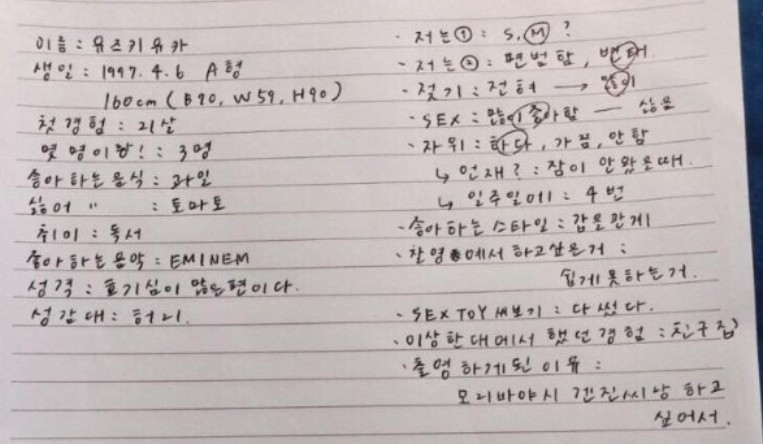 이름 : 유즈키유카
생일 : 1997. 4. 6 A형
160cm ( B90, W59, H90 )
첫경험 : 21살
몇 명이랑! : 3명
좋아하는음식 : 과일
싫어 〃 : 토마토
취미 : 독서
좋아하는음악 : EMINEM
성격 : 호기심이 많은편이다.
성감대 : 허리.
· 저는① : S, M ?
· 저는② : 평범함, 변태.
· 젖기 : 전혀 → 많이
· SEX : 많이 좋아함 — 싫음
· 자위 : 하다, 가끔, 안함
↳ 언재? : 잠이 안왔을때.
↳ 일주일에 : 4번
· 좋아하는스타일 : 갑을관계
· 촬영에서 하고싶은거 :
쉽게못하는거.
· SEX TOY 써보기 : 다 썼다.
· 이상한대에서 했던경험 : 친구집
· 촬영하게된이유 :
모리바야시 겐진씨랑 하고
싶어서.